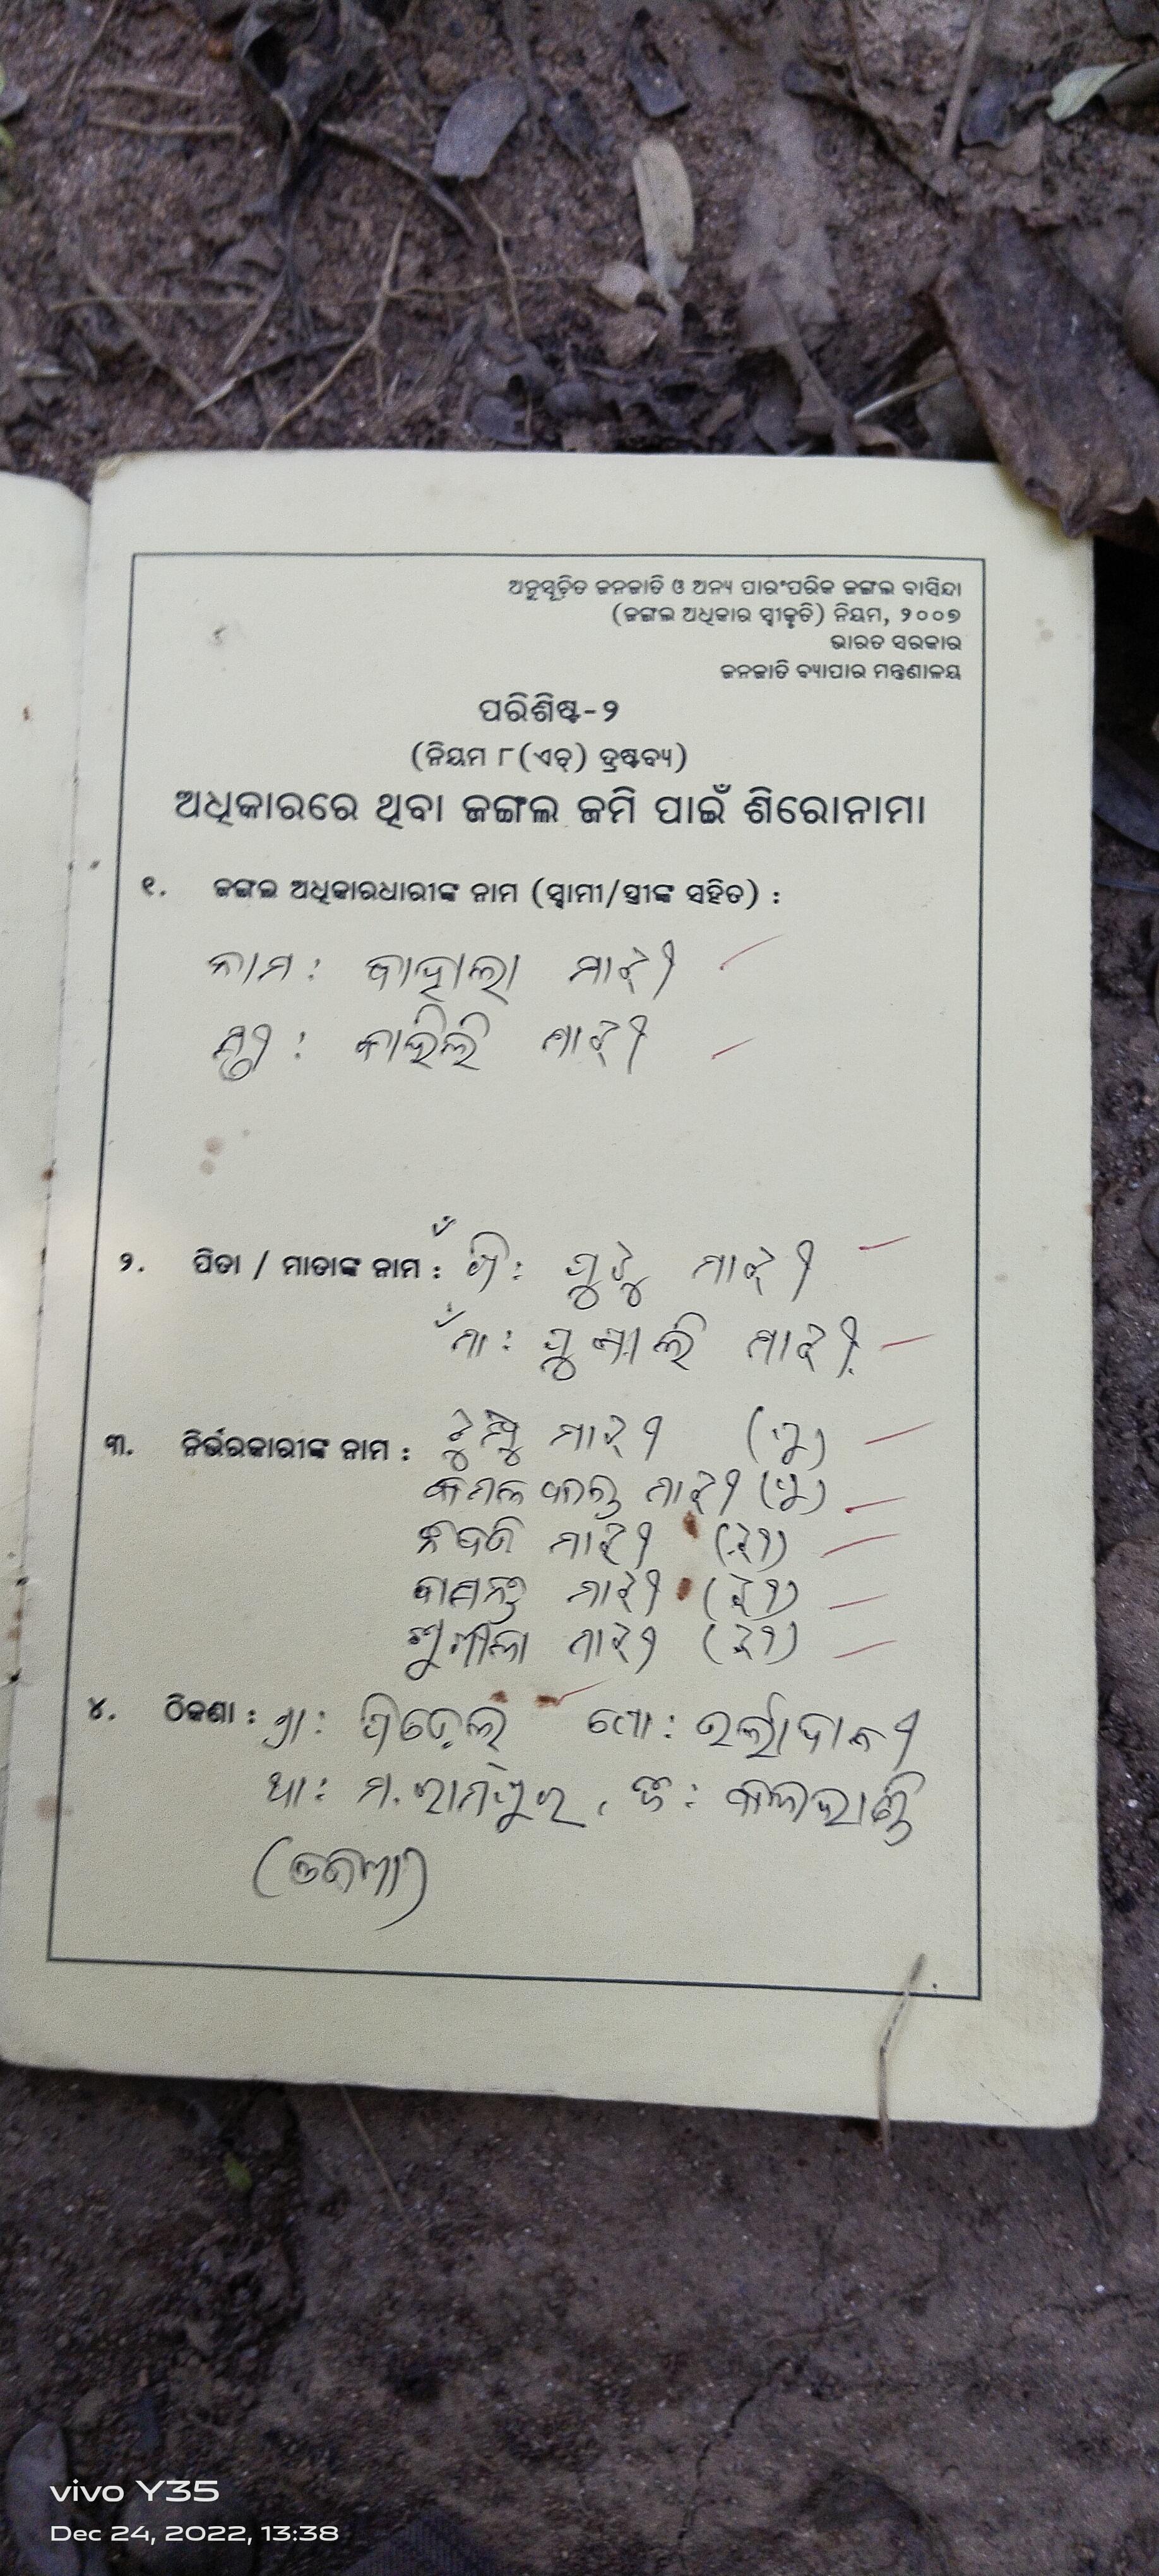 ଅନୁସୂଚିତ ଜନଜାତି ଓ ଅନ୍ୟ ପାରଂପରିକ ଜଙ୍ଗଲ ବାସିନ୍ଦା
(ଜଙ୍ଗଲ ଅଧିକାର ସ୍ୱୀକୃତି) ନିୟମ, ୨୦୦୭
ଭାରତ ସରକାର
ଜନଜାତି ବ୍ୟାପାର ମନ୍ତ୍ରଣାଳୟ
ପରିଶିଷ୍ଟ-୨
(ନିୟମ ୮(ଏଚ୍) ଦ୍ରଷ୍ଟବ୍ୟ)
ଅଧିକାରରେ ଥିବା ଜଙ୍ଗଲ ଜମି ପାଇଁ ଶିରୋନାମା
୧. ଜଙ୍ଗଲ ଅଧିକାରଧାରୀଙ୍କ ନାମ (ସ୍ୱାମୀ/ସ୍ତ୍ରୀଙ୍କ ସହିତ) :
ନାମ : ବାହାଲା ମାଝୀ
ସ୍ତ୍ରୀ : ମାଝୀ
୨. ପିତା / ମାତାଙ୍କ ନାମ : ପି: ମାଝୀ
ମା : ମାଝୀ
୩. ନିର୍ଭରକାରୀଙ୍କ ନାମ : ମାଝୀ (ପୁ)
ମାଝୀ (ପୁ)
ମାଝୀ (ଝୀ)
ବାସନ୍ତୀ ମାଝୀ (ଝୀ)
ସୁଶୀଳା ମାଝୀ (ଝୀ)
୪. ଠିକଣା : ଗ୍ରା: ପୋ: ଉର୍ଲାଦାନୀ
ଥା: ମ.ରାମପୁର, ଜି: କଳାହାଣ୍ଡି
(ଓଡିଶା)
vivo Y35
Dec 24, 2022, 13:38